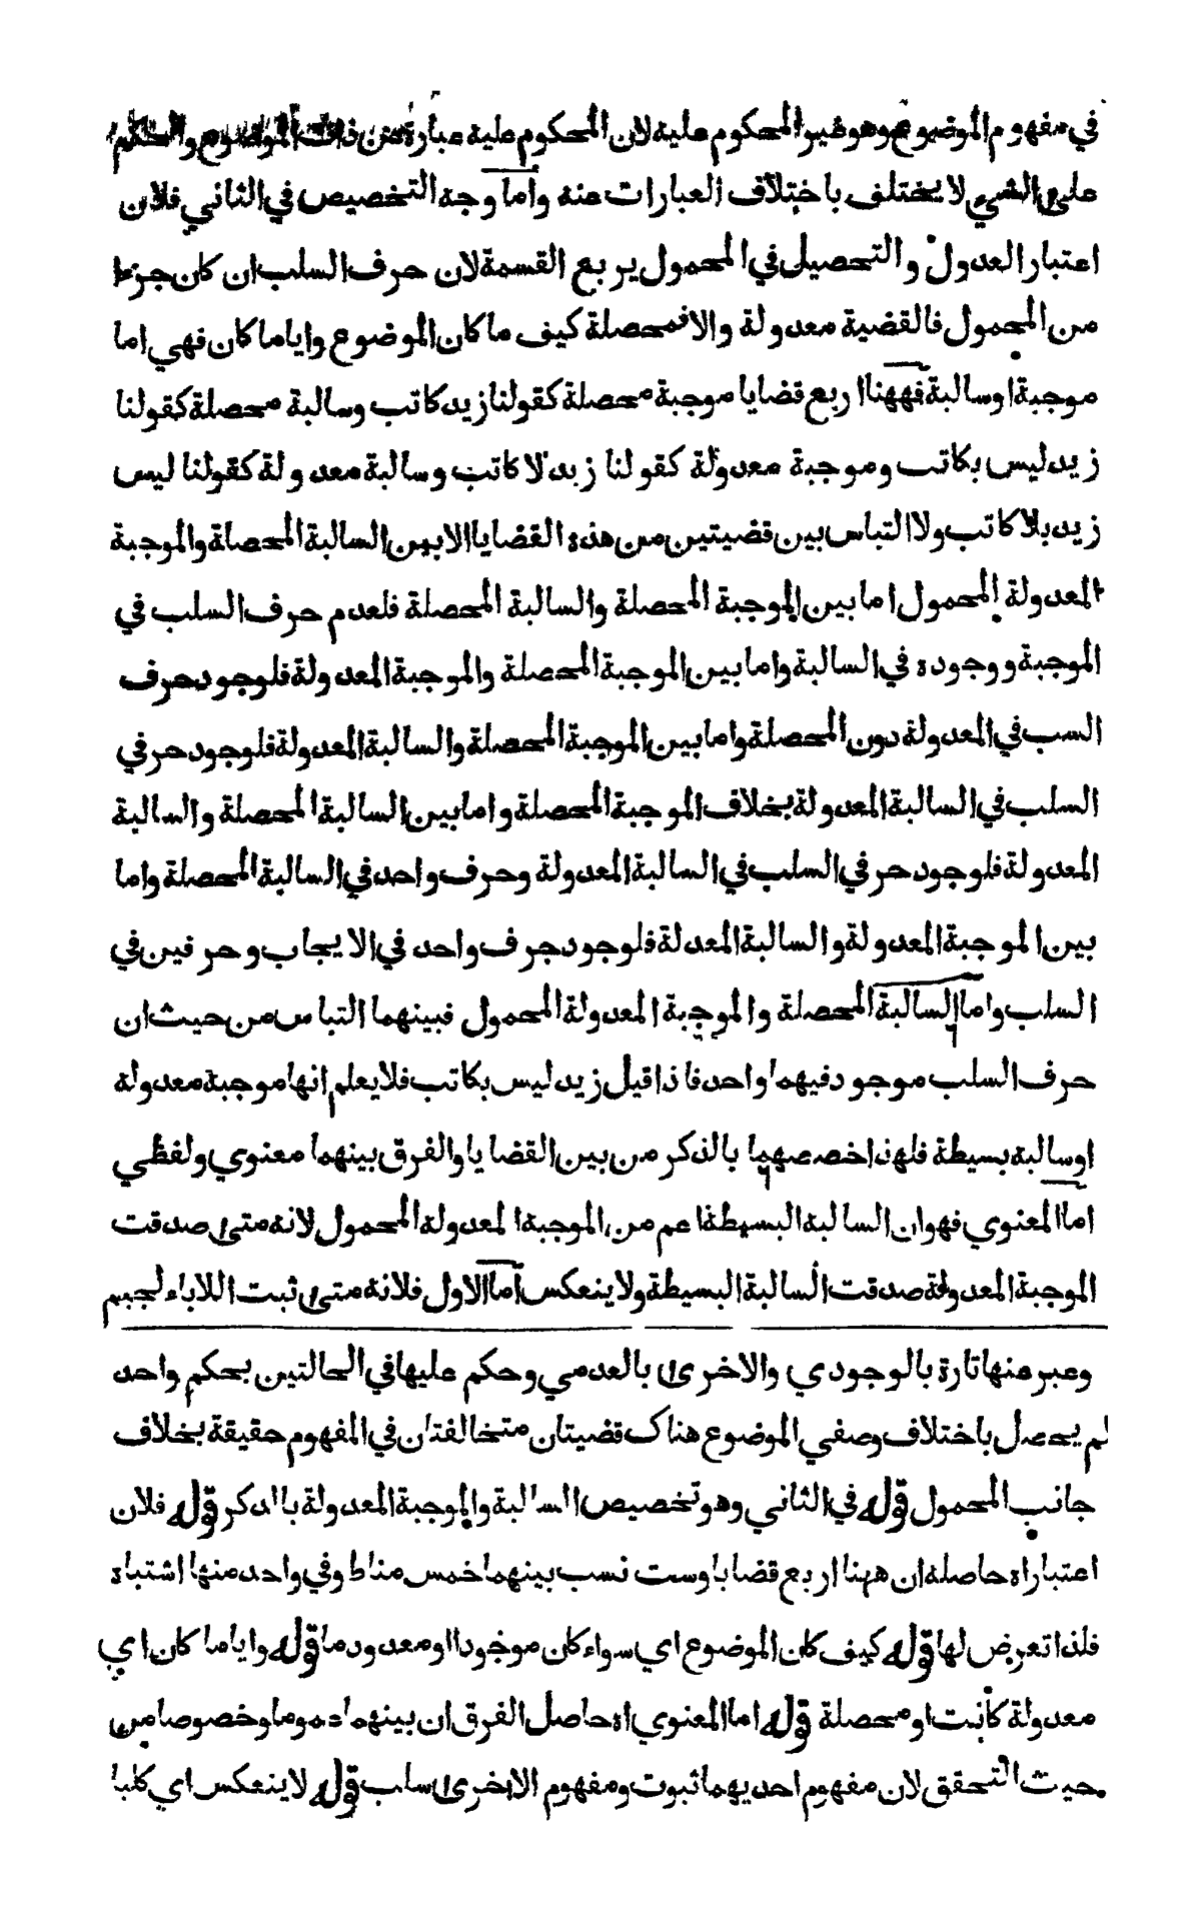 في مفهوم الموضوع وهو غير المحكوم علية لان المحكوم علية عبارة عن ذات الموضوع والحكم
على الشي لا يختلف باختلاف العبارات عنه واما وجه التخصيص في الثاني فلان
اعتبار العدول والتحصيل في المحمول يربع القسمة لان حرف السلب ان كان جزءا
من المحمول فالقضية معدولة والا فمحصلة كيف ما كان الموضوع واياما كان فهي اما
موجبة او سالبة فههنا اربع قضايا موجبة محصلة كقولنا زيد كاتب وسالبة محصلة كقولنا
زيد ليس بكاتب وموجبة معدولة كقولنا زيد لا كاتب وسالبة معدولة كقولنا ليس
زيد بلا كاتب ولا التباس بين قضيتين من هذه القضايا الا بين السالبة المحصلة والموجبة
المعدولة المحمول اما بين الموجبة المحصلة والسالبة المحصلة فلعدم حرف السلب في
الموجبة ووجوده في السالبة واما بين الموجبة المحصلة والموجبة المعدولة فلوجود حرف
السب في المعدولة دون المحصلة واما بين الموجبة المحصلة والسالبة المعدولة فلوجود حرفي
السلب في السالبة المعدولة بخلاف الموجبة المحصلة واما بين السالبة المحصلة والسالبة
المعدولة فلوجود حرفي السلب في السالبة المعدولة وحرف واحد في السالبة المحصلة واما
بين الموجبة المعدولة والسالبة المعدلة فلوجود حرف واحد في الايجاب وحرفين في
السلب واما السالبة المحصلة والموجبة المعدولة المحمول فبينهما التباس من حيث ان
حرف السلب موجود فيهما واحد فاذا قيل زيد ليس بكاتب فلا يعلم انها موجبة معدولة
او سالبة بسيطة فلهذا خصصهما بالذكر من بين القضايا والفرق بينهما معنوي ولفظي
اما المعنوي فهو ان السالبة البسيطة اعم من الموجبة المعدولة المحمول لانه متى صدقت
الموجبة المعدولة صدقت السالبة البسيطة ولا ينعكس اما الاول فلانه متى ثبت اللاباء لجيم
وعبر عنها تارة بالوجودي والاخرى بالعدمي وحكم عليها في الحالتين بحكم واحد
لم يحصل باختلاف وصفي الموضوع هناك قضيتان متخالفتان في المفهوم حقيقة بخلاف
جانب المحمول قوله في الثاني وهو تخصيص السالبة والموجبة المعدولة بالذكر قوله فلان
اعتبار اه حاصله ان ههنا اربع قضايا وست نسب بينهما خمس مناط وفي واحد منها اشتباه
فلذا تعرض لها قوله كيف كان الموضوع اي سواء كان موجودا او معدودما قوله واياما كان اي
معدولة كانت او محصلة قوله اما المعنوي اه حاصل الفرق ان بينهما عموما وخصوصا من
حيث التحقق لان مفهوم احديهما ثبوت ومفهوم الاخرى سلب قوله لا ينعكس اي كليا